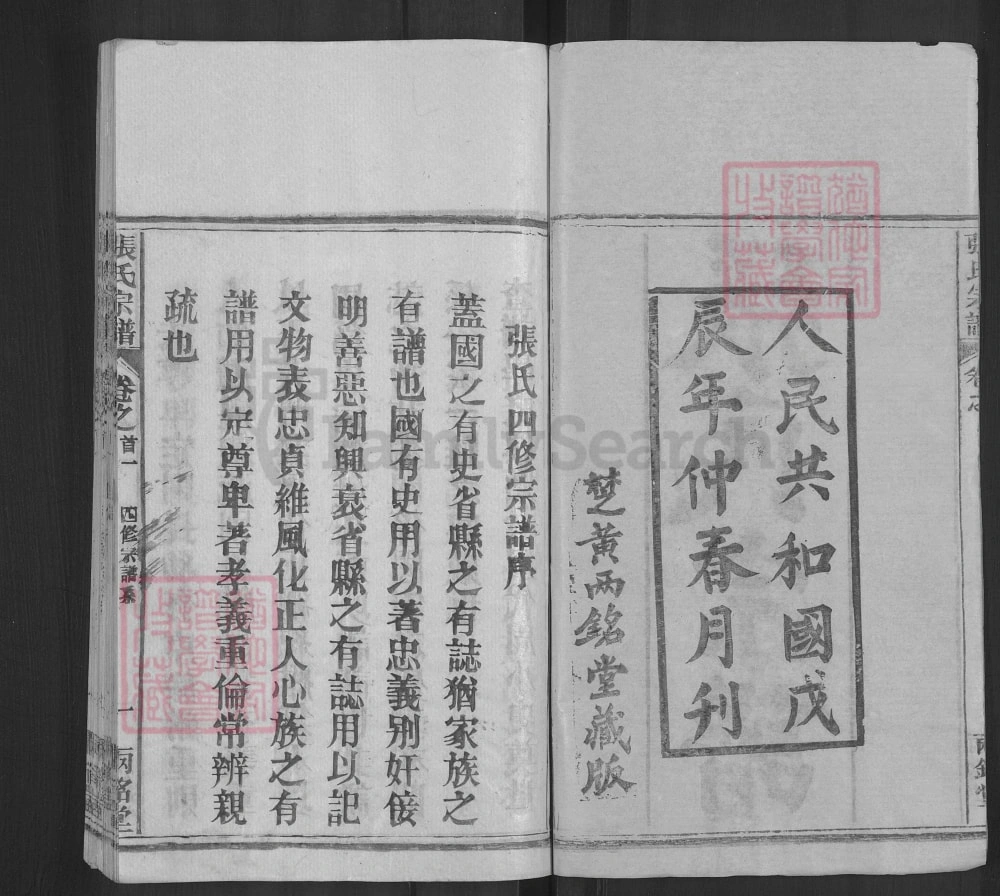 人民共和國戊
辰年仲春月刊
楚黃兩銘堂藏版
張氏四修宗譜序
蓋國之有史省縣之有誌猶家族之
有譜也國有史用以著忠義别奸佞
明善惡知興衰省縣之有誌用以記
文物表忠貞維風化正人心族之有
譜用以定尊卑著孝義重倫常辨親
疏也
張氏宗譜
卷之首一
四修宗譜序
一
兩銘堂
FamilySearch